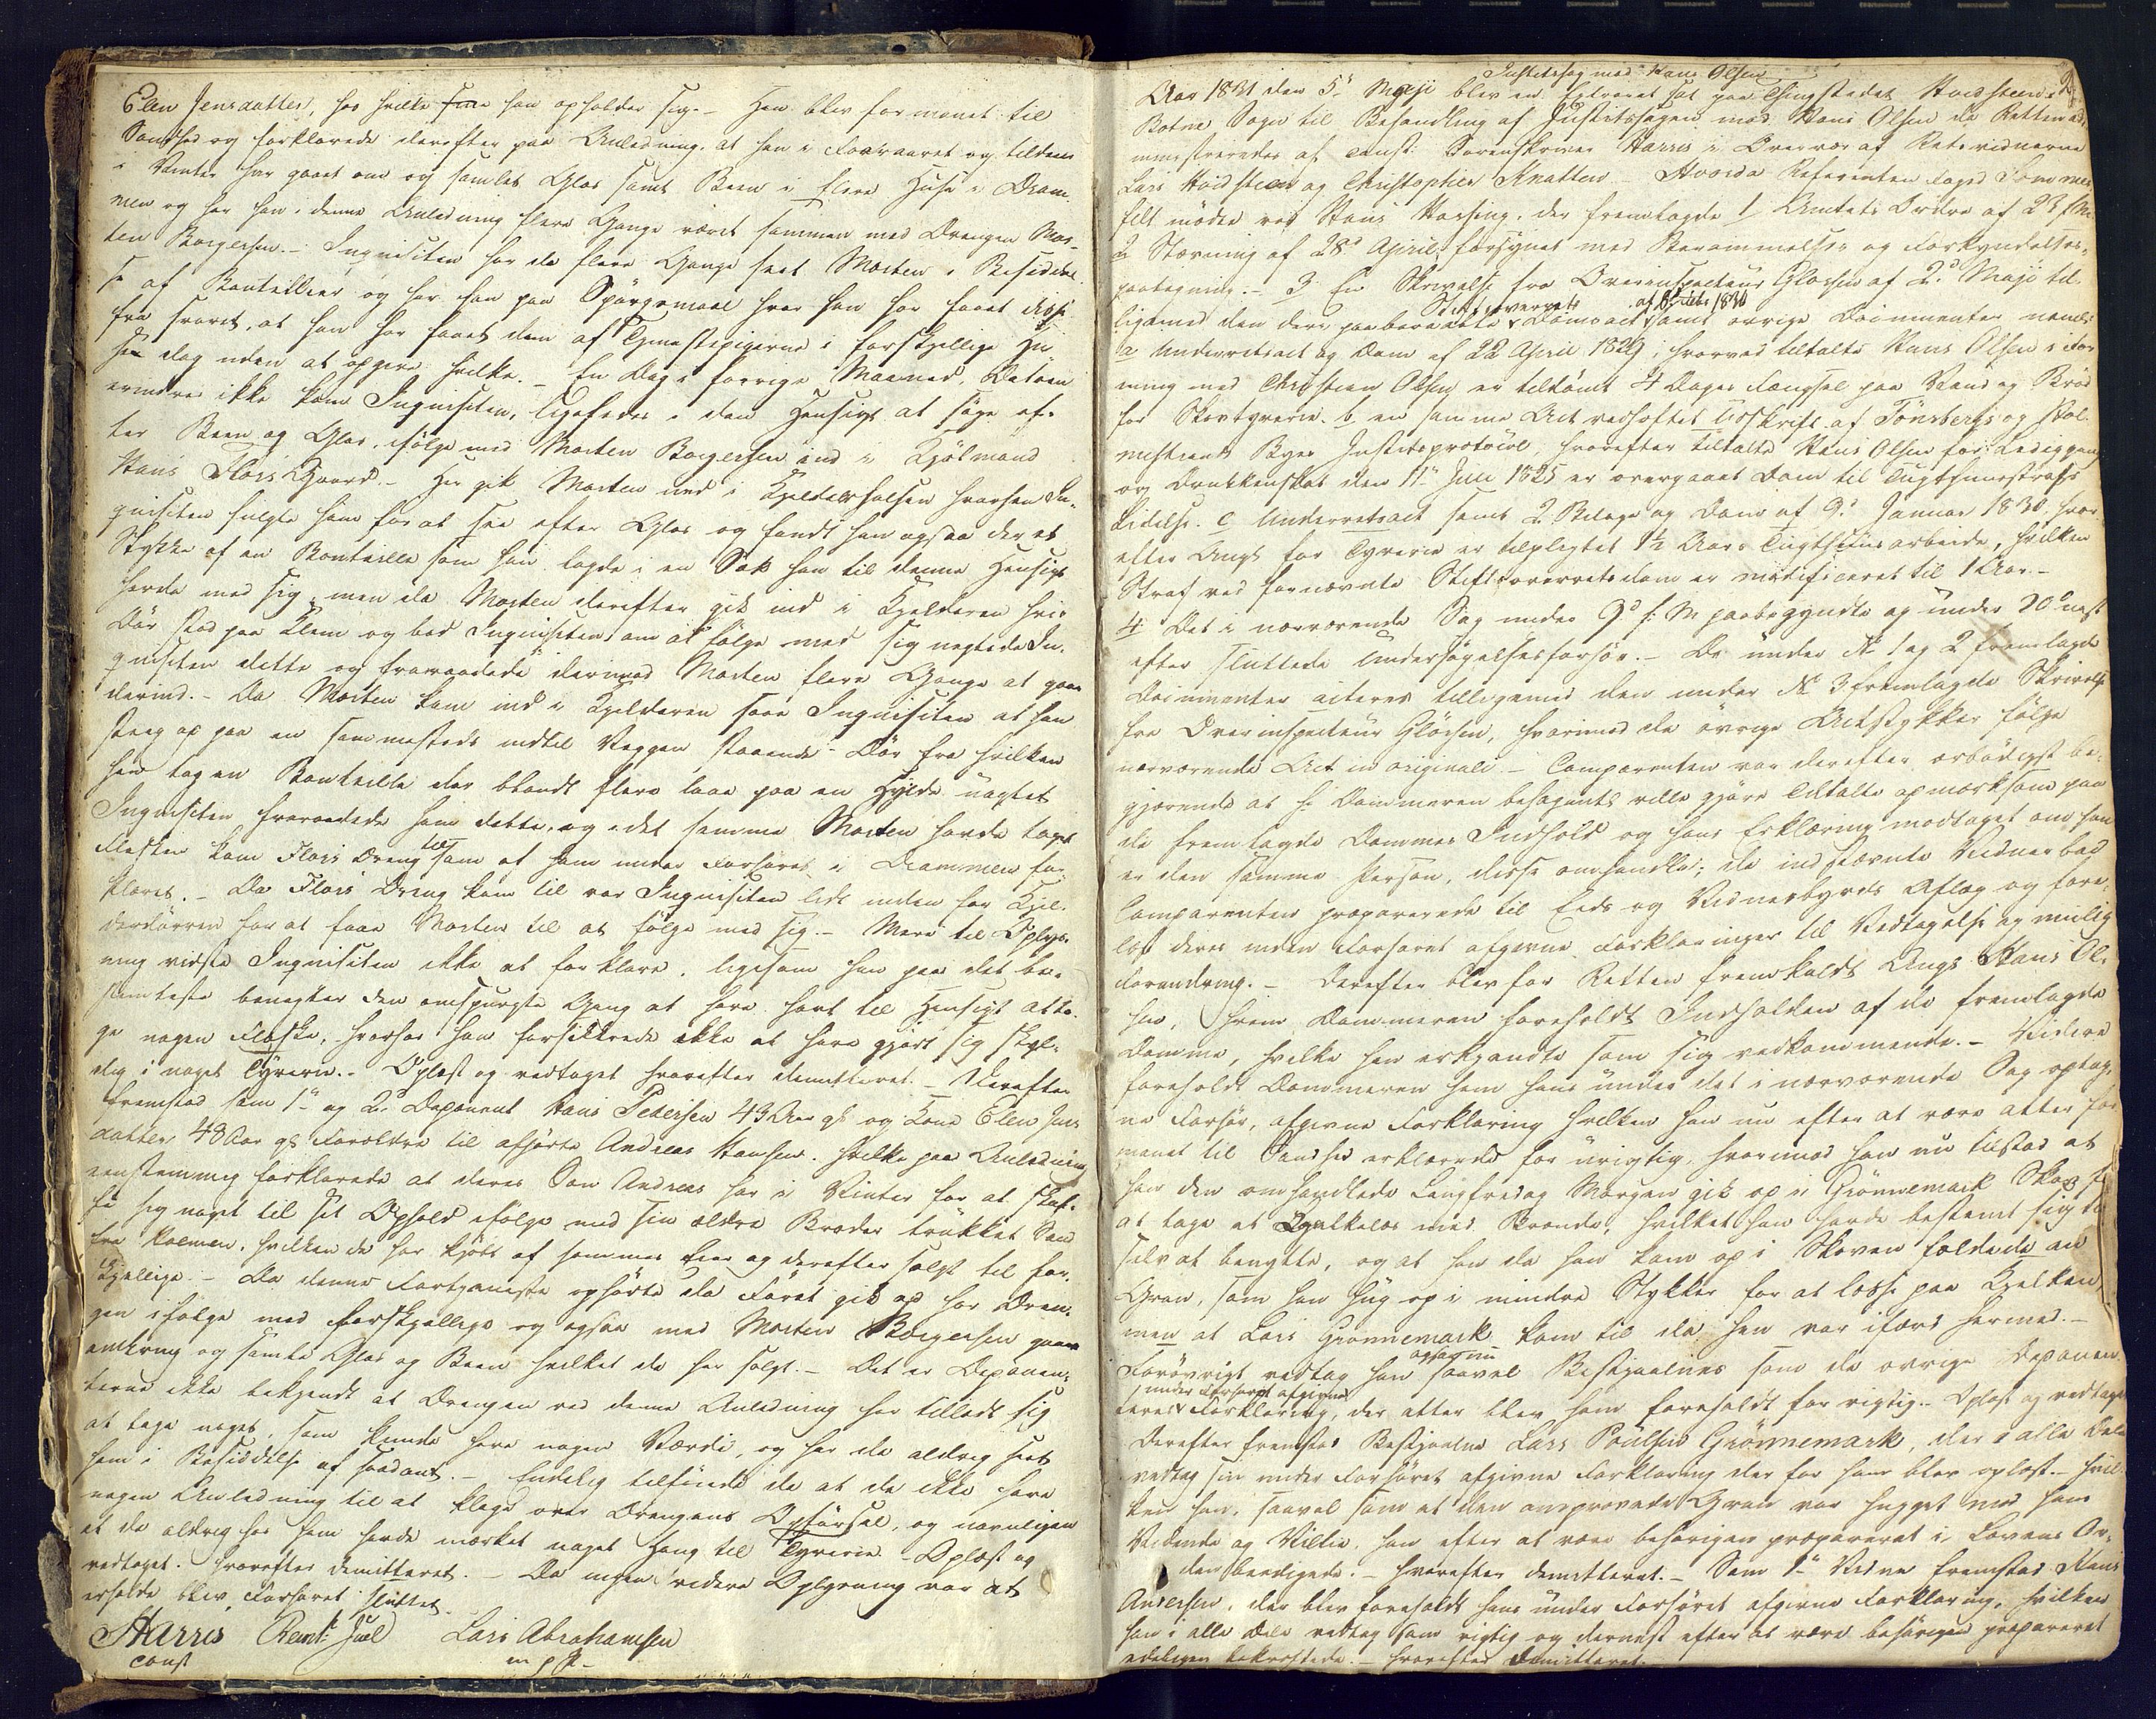 Elen Jensdatter, hos hvilke han opholder sig. – Han blev formanet til
Sandhed og forklarede derefter paa Anledning, at han i Foraaret og tildeels
i Vinter har gaaet om og samlet Glas samt Been i flere Huse i Dram-
men og har han i denne Anledning flere Gange været sammen med Drengen Mor-
ten Borgersen. – Inqvisiten har da flere Gange seet Morten i Besiddel-
se af Bouteiller og har han paa Spørgsmaal hvor han har faaet disse
fra svaret, at han har faaet dem af Tjenestepigerne i forskjellige Hu
se dog uden at opgive hvilke. – En Dag i forrige Maaned, Datoen
erindres ikke kom Inqvisiten, ligeledes i den Hensigt at søge ef-
ter Been og Glas, ifølge med Morten Borgersen ind i Kjøbmand
Hans Flors Gaard. – Her gik Morten ned i Kjelderhalsen hvorhen In-
qvisiten fulgte ham for at see efter Glas og fandt han ogsaa der et
Stykke af en Bouteille som han lagde i en Sæk han til denne Hensigt
havde med sig, men da Morten derefter gik ind i Kjelderen hvis
Dør stod paa Klem og bad Inqvisiten om at følge med sig negtede In-
qvisiten dette og fraraadede derimod Morten flere Gange at gaae
derind. – Da Morten kom ind i Kjelderen saae Inqvisiten at han
steeg op paa en sammesteds indtil Væggen staaende Dør fra hvilken
han tog en Bouteille der blandt flere laae paa en Hylde uagtet
Inqvisiten fraraadede ham dette, og idet samme Morten havde taget
Flasken kom Flors Dreng til som af ham under Forhøret i Drammen for-
klaret. – Da Flors Dreng kom til var Inqvisiten lidt uden for Kjel-
derdørren for at faae Morten til at følge med sig. – Mere til Oplys-
ning vidste Inqvisiten ikke at forklare, ligesom han paa det be-
stemteste benegter den omspurgte Gang at have havt til Hensigt at ta-
ge nogen Flaske, hvorhos han forsikkrede ikke at have gjort sig skyl-
dig i noget Tyverie. – Oplæst og vedtaget hvorefter demitteret. – Derefter
fremstod som 1ste og 2den Deponent Hans Pedersen 43 Aar gl og Kone Elen Jens
datter 48 Aar gl Forældre til afhørte Andreas Hansen, hvilke paa Anledning
eenstemmig forklarede at deres Søn Andreas har i Vinter for at skaf-
fe sig noget til sit Ophold ifølge med sin ældre Broder trukket Sand
fra Koemen, hvilken de har kjøbt af sammes Eier og derefter solgt til for-
skjellige. – Da denne Fortjeneste ophørte da Føret gik op har Dren-
gen ifølge med forskjellige og ogsaa med Morten Borgersen gaaet
omkring og samlet Glas og Been hvilket de har solgt. – Det er Deponen-
terne ikke bekjendt at Drengen ved denne Anledning har tilladt sig
at tage noget, som kunde have nogen Værdi, og har de aldrig seet
ham i Besiddelse af saadant. – Endelig tilføiede de at de ikke have
nogen Anledning til at klage over Drengens Opførsel, og navnligen
at de aldrig hos ham havde mærket noget Hang til Tyverie. – Oplæst og
vedtaget. hvorefter demitteret. – Da ingen videre Oplysning var at
erholde blev Forhøret sluttet.
Harris Lars Abrahamsen
const m p P
Justitssag mod Hans Olsen
Aar 1831 den 5te Maji blev en Extraret sat paa Thingstedet Hvidsteen i
Botne Sogn til Behandling af Justitssagen mod Hans Olsen da Retten ad-
ministreredes af const: Sorenskriver Harris i Overvær af Retsvidnerne
Lars Hvidsteen og Christopher Knatten – Hvorda Referenten Foged Sommer-
felt mødte ved Hans Hassing, der fremlagde 1 Amtets Ordre af 23 f M
2 Stævning af 28de April forsynet med Berammelses og Forkyndelses-
paategning. – 3 En Skrivelse fra Overinspecteur Gløersen af 2den Maji til-
ligemed den deri paaberaabte Stiftsoverrets Domsact af 1830 samt øvrige Documenter nemlig
a Underretsact og Dom af 22 April 1829, hvorved tiltalte Hans Olsen i For
ening med Christian Olsen er tildømt 4 Dages Fængsel paa Vand og Brød
for Skovtyverie. b en samme Act vedhæftet Udskrift af Tønsbergs og Hol-
mestrands Byes Justitsprotocol, hvorefter tiltalte Hans Olsen for Lediggang
og Drukkenskab den 11te Juli 1825 er overgaaet Dom til Tugthuusstrafs
Lidelse. c Underretsact samt 2 Bilage og Dom af 9de Januar 1830, hvor-
efter Angl for Tyverie er tilpligtet 1½ Aars Tugthuusarbeide, hvilken
Straf ved fornævnte Stiftsoverretsdom er modificeret til 1 Aar. –
4 Det i nærværende Sag under 9de f: M paabegyndte og under 20de næst
efter sluttede Undersøgelsesforhør. – De under No 1 og 2 fremlagde
Documenter acteres tilligemed den under No 3 fremlagde Skrivelse
fra Overinspecteur Gløersen, hvorimod de øvrige Actstykker følge
nærværende Act in originali. – Comparenten var derefter ærbødigst be-
gjærende at Hr Dommeren behageligst ville gjøre Tiltalte opmærksom paa
de fremlagde Dommes Indhold og hans Erklæring modtaget om han
er den samme Person, disse omhandle; de indstævnte Vidner bad
Comparenten præparerede til Eeds og Vidnesbyrds Aflæg og fore-
læst deres under Forhøret afgivne Forklaringer til Vedtagelse og muelig
Forandring. – Derefter blev for Retten fremkaldt Angl Hans Ol-
sen, hvem Dommeren foreholdt Indholden af de fremlagde
Domme, hvilke han erkjendte som sig vedkommende. – Videre
foreholdt Dommeren ham hans under det i nærværende Sag optag-
ne Forhør, afgivne Forklaring hvilken han nu efter at være atter for
manet til Sandhed erklærede for urigtig, hvorimod han nu tilstod at
han den omhandlede Langfredag Morgen gik op i Grønnemark Skov for
at tage et Kjelkelæs med Brænde, hvilket han havde bestemt sig til
selv at benytte, og at han da han kom op i Skoven fældede en
Gran, som han hug op i mindre Stykker for at læsse paa Kjelken,
men at Lars Grønnemark kom til da han var ifærd hermed. –
Forøvrigt vedtog han ogsaa nu saavel Bestjaalnes som de øvrige Deponen-
ters under Forhøret afgivne Forklaring, der atter blev ham foreholdt for rigtig. Oplæst og vedtaget
Derefter fremstod Bestjaalne Lars Poulsen Grønnemark, der i alle Dele
vedtog sin under Forhøret afgivne Forklaring der for ham blev oplæst. – hvil-
ken han, saavel som at den omprovede Gran var hugget mod hans
Vidende og Villie, han efter at være behørigen præpareret i Lovens Or-
den beedigede. – hvorefter demitteret. – Som 1ste Vidne fremstod Hans
Andersen, der blev foreholdt hans under Forhøret afgivne Forklaring, hvilken
han i alle Dele vedtog som rigtig og dernæst efter at være behørigen præpareret
edeligen bekræftede. – hvorefter demitteret.